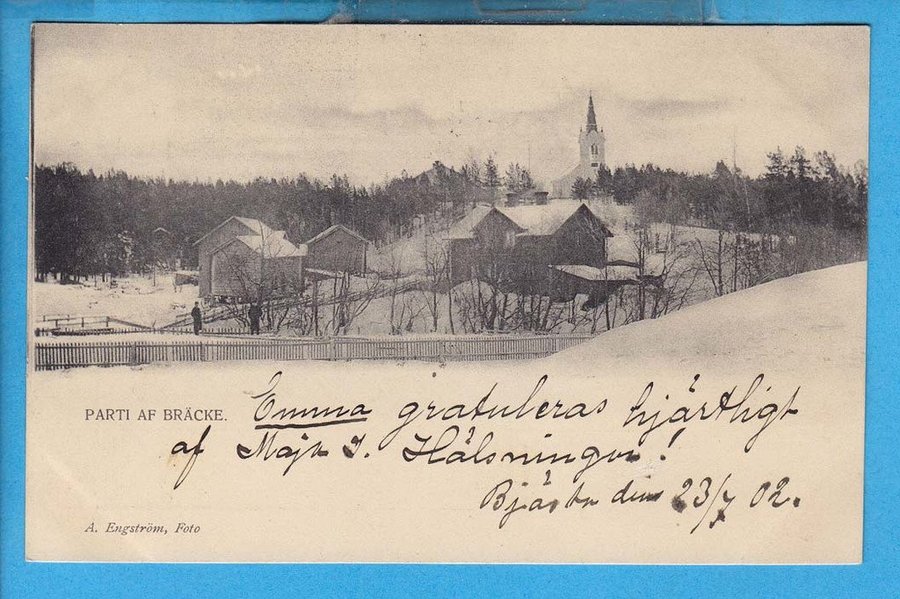 PARTI AF BRÄCKE.
Emma gratuleras hjärtligt
af Maja I. Hälsningar!
Bjästa den 23/7 02.
A. Engström, Foto